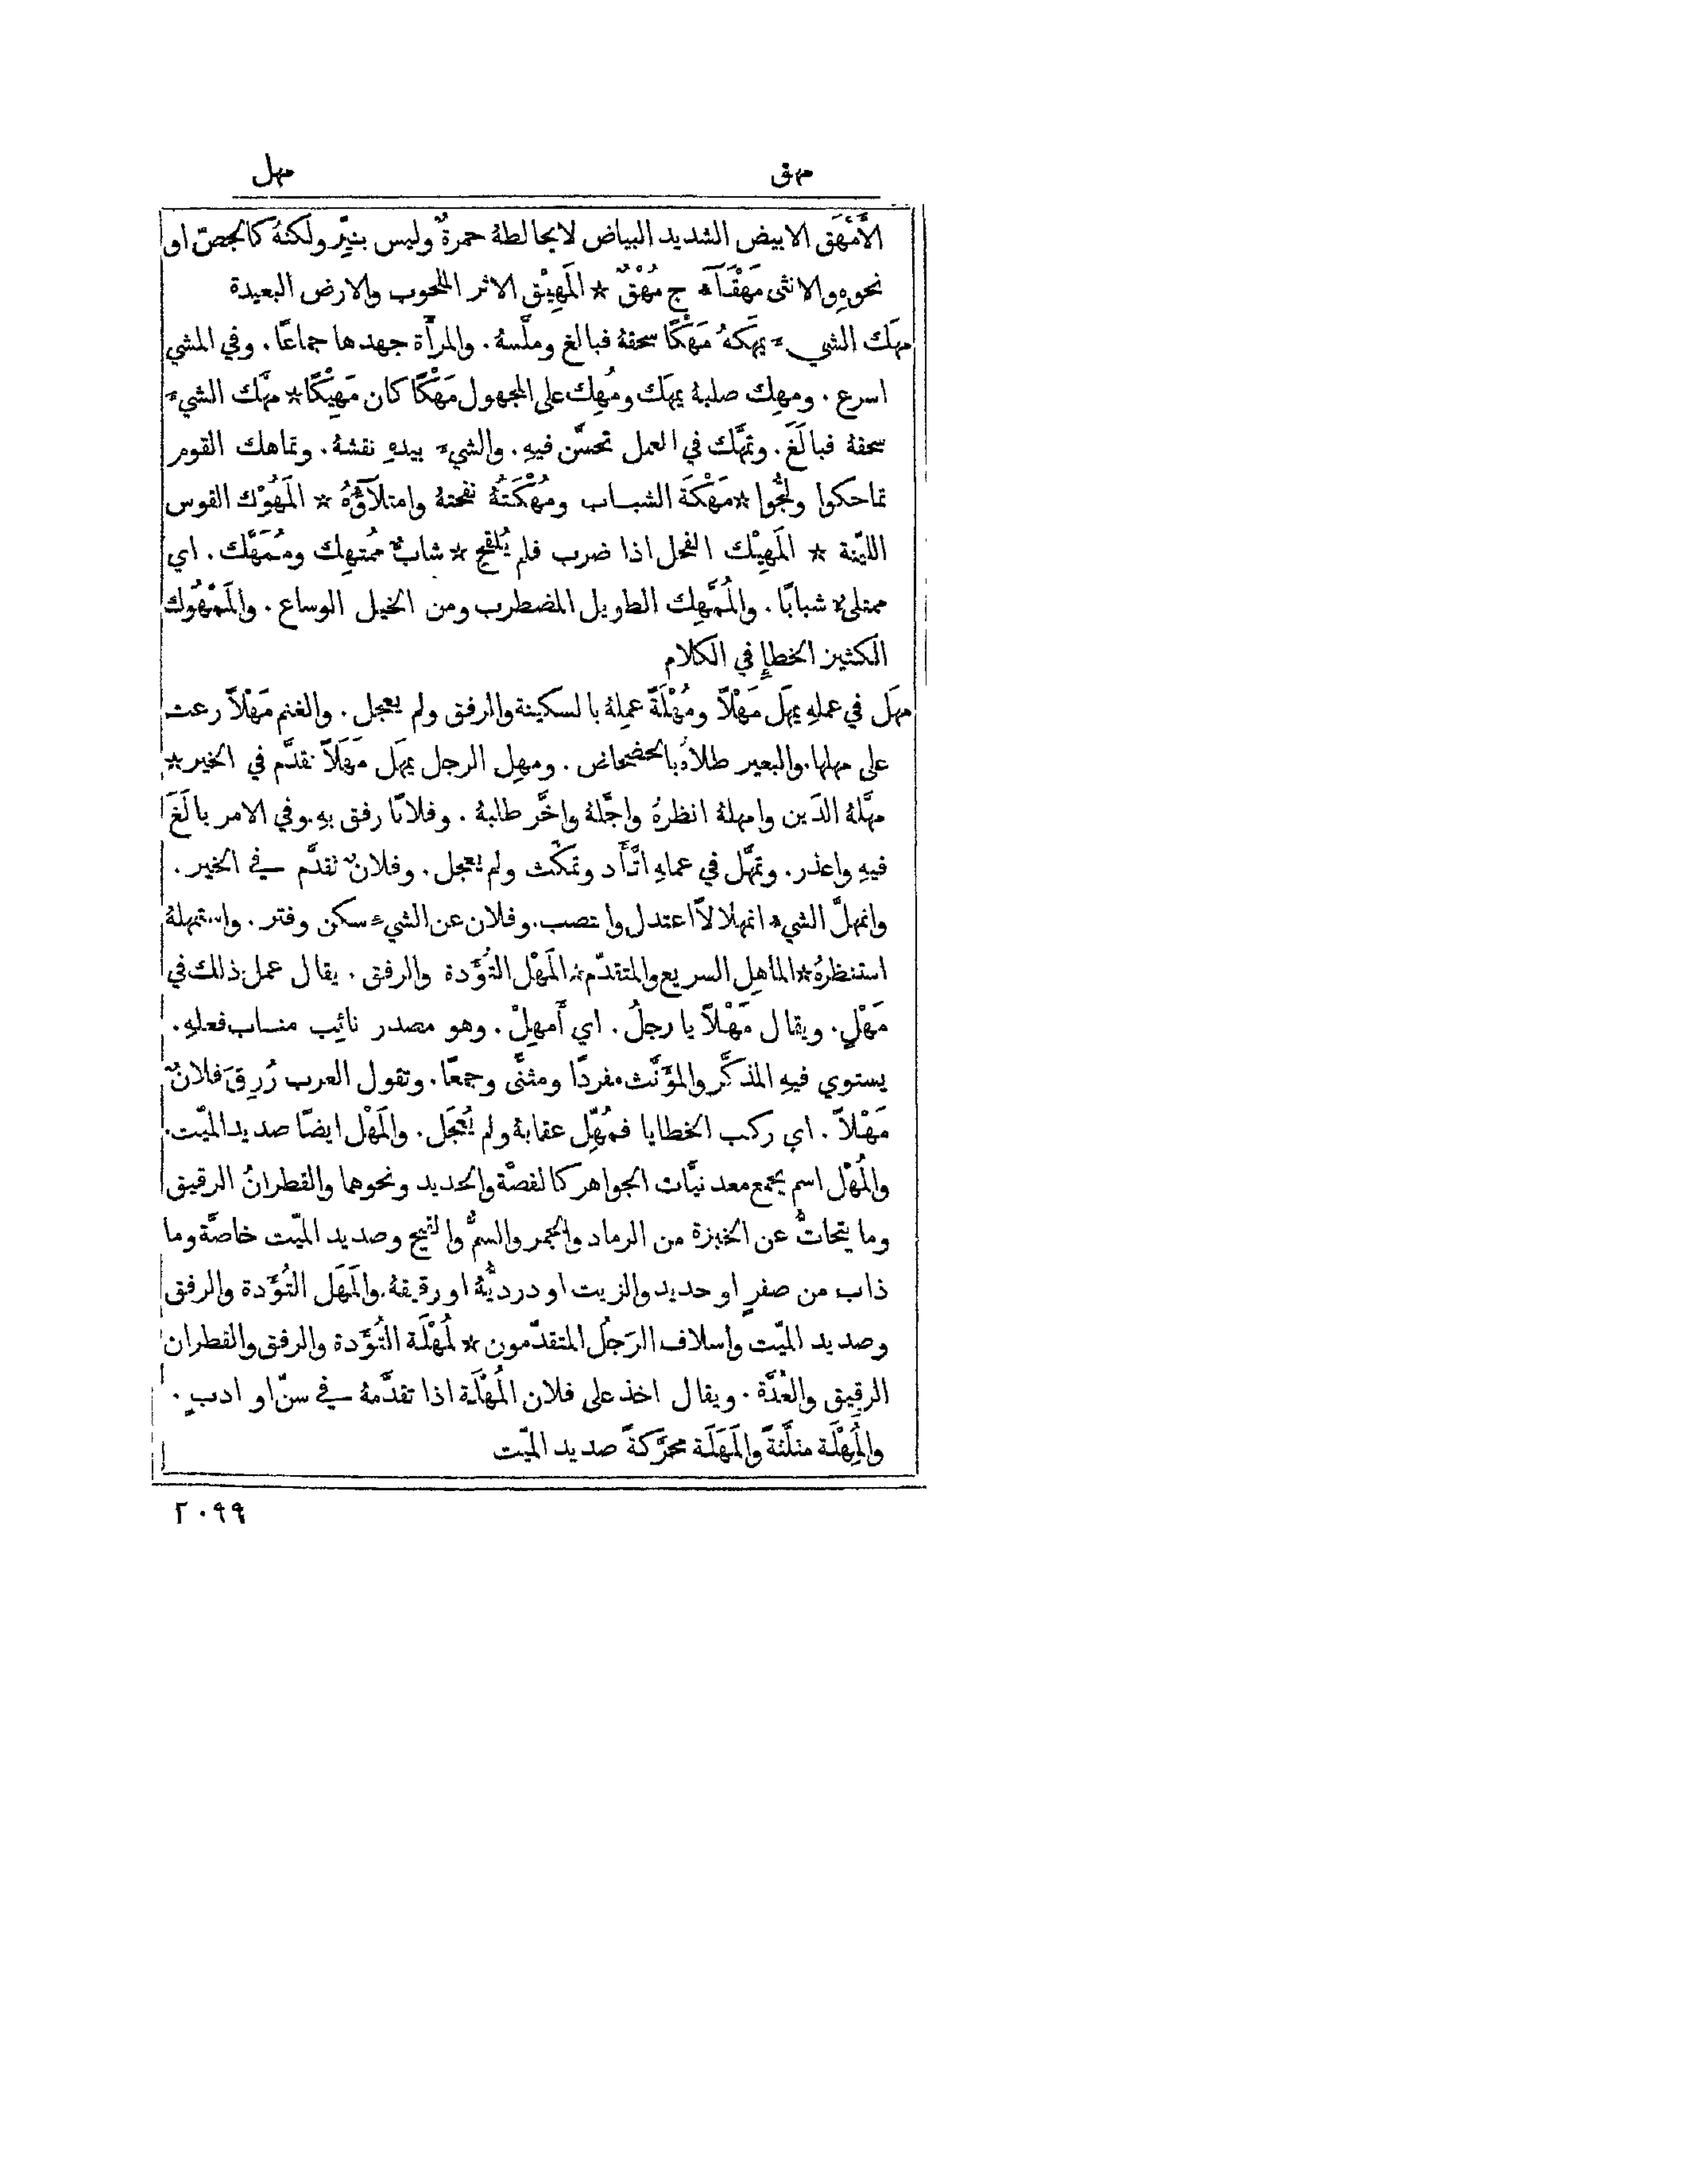 مهق مهل
الأَمْهَق الابيض الشديد البياض لا يخالطهُ حمرةٌ وليس بنيِّر ولكنهُ كالجصّ او
نحوهِ والانثى مَهْقَآء ج مُهْقٌ ☆ المَهِيْق الاثر الملحوب والارض البعيدة
مهَك الشيء يمهَكهُ مَهْكًا سحقهُ فبالغ وملَّسهُ. والمرأَة جهدها جماعًا. وفي المشي
اسرع. ومهِك صلبهُ يمهَك ومُهِك على المجهول مَهْكًا كان مَهِيْكًا ☆ مهَّك الشيء
سحقهُ فبالَغَ. وتمهَّك في العمل تحسَّن فيهِ. والشيء بيدهِ نقشهُ. وتماهك القوم
تماحكوا ولجُّوا ☆ مَهْكَة الشباب ومُهْكَتُهُ نفحتهُ وامتلآؤُهُ ☆ المَهُوْك القوس
الليّنة ☆ المَهِيْك الفحل اذا ضرب فلم يُلقِح ☆ شابٌّ مُمتهِك ومُمَهَّك. اي
ممتلئ شبابًا. والمُمَّهِك الطويل المضطرب ومن الخيل الوساع. والمَمْهُوك
الكثير الخطإِ في الكلام
مهَل في عملهِ يمهَل مَهْلًا ومُهْلَةً عملهُ بالسكينة والرفق ولم يعجل. والغنم مَهْلًا رعت
على مهلها. والبعير طلاهُ بالخضخاض. ومهِل الرجل يمهَل مَهَلًا تقدَّم في الخير ☆
مهَّلهُ الدَين وامهلهُ انظرهُ واجَّلهُ واخَّر طلبهُ. وفلانًا رفق بهِ. وفي الامر بالَغَ
فيهِ واعذر. وتمهَّل في عملهِ اتَّأَد وتمكَّث ولم يعجل. وفلانٌ تقدَّم في الخير.
واتمهلَّ الشيء اتمهلالًا اعتدل وانتصب. وفلان عن الشيء سكن وفتر. واستمهلهُ
استنظرهُ ☆ الماهِل السريع والمتقدّم ☆ المَهْل التُؤَدة والرفق. يقال عمل ذلك في
مَهْلٍ. ويقال مَهْلًا يا رجلُ. اي أَمهِلْ. وهو مصدر نائِب مناب فعلهِ.
يستوي فيهِ المذكَّر والمؤَنَّث مفردًا ومثنًّى وجمعًا. وتقول العرب رُزِقَ فلانٌ
مَهْلًا. اي ركب الخطايا فمُهِّل عقابهُ ولم يُعجَل. والمَهْل ايضًا صديد الميّت.
والمُهْل اسم يجمع معدنيَّات الجواهر كالفضَّة والحديد ونحوهما والقطرانُ الرقيق
وما يتحاتُّ عن الخبزة من الرماد والجمر والسمُّ والقيح وصديد الميّت خاصَّةً وما
ذاب من صفرٍ او حديد والزيت او درديُّهُ او رقيقهُ. والمَهَل التُؤَدة والرفق
وصديد الميّت واسلاف الرَجُل المتقدّمون ☆ المُهْلَة التُؤَدة والرفق والقطران
الرقيق والعُدَّة. ويقال اخذ على فلان المُهْلَة اذا تقدَّمهُ في سنّ او ادبٍ.
والمُهْلَة مثلَّثةً والمَهَلَة محرَّكةً صديد الميّت
٢٠٩٩